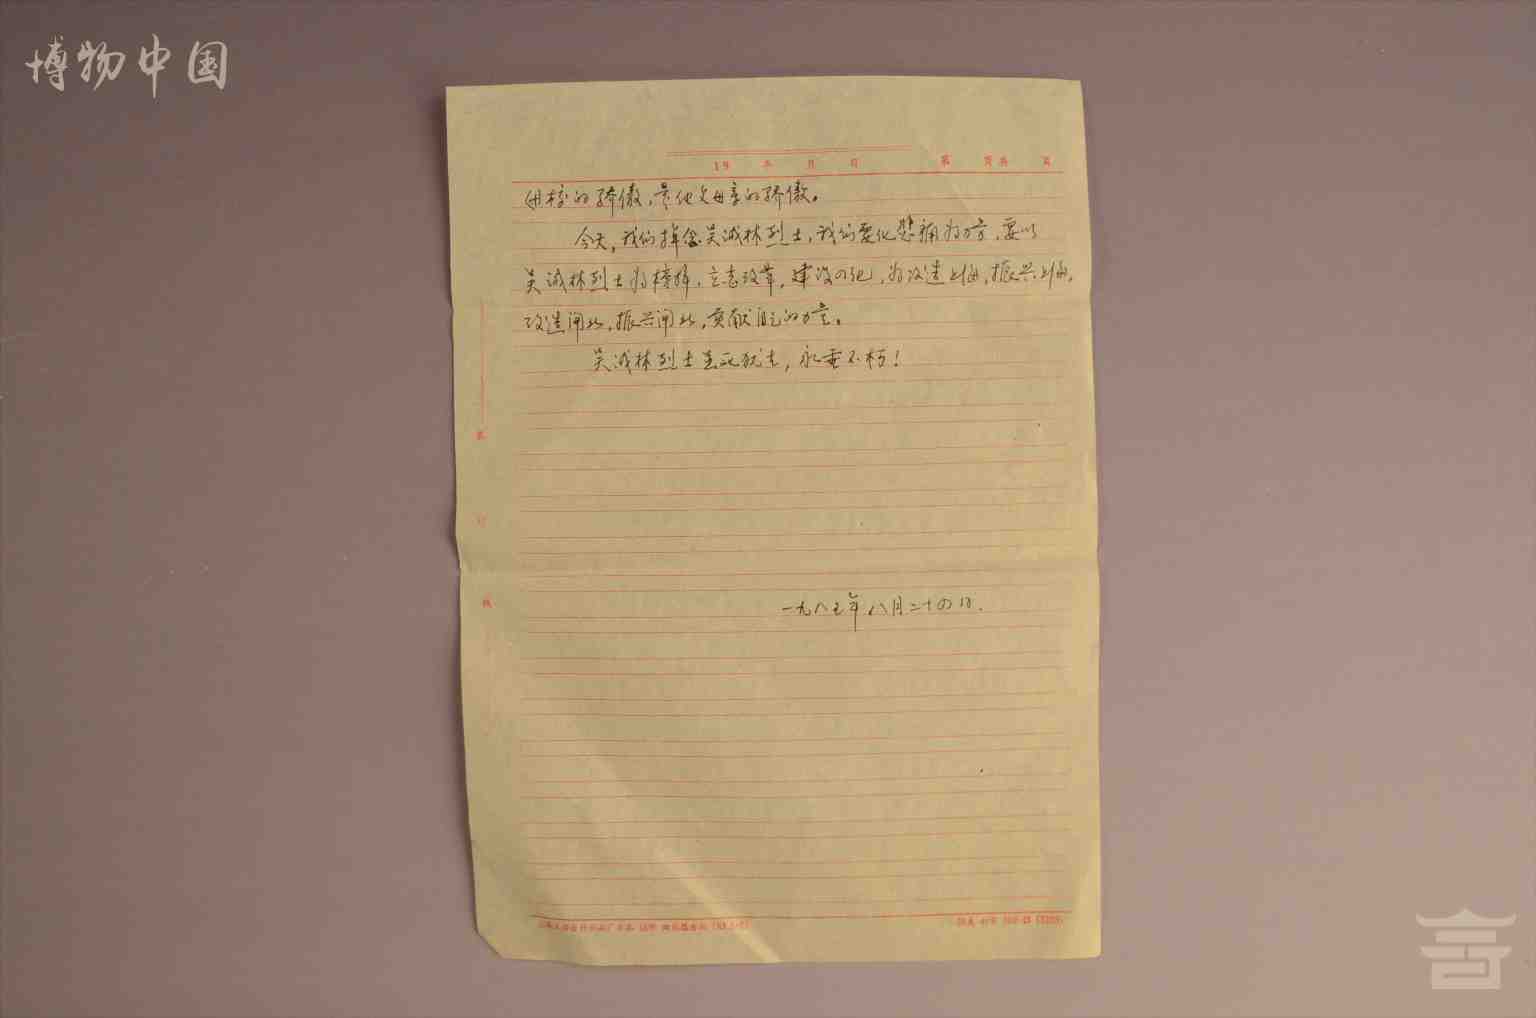 博物中国
19 年 月 日 第 页共 页
母校的骄傲，是他父母亲的骄傲。
今天，我们悼念吴诚林烈士，我们要化悲痛为力量，要以
吴诚林烈士为榜样，立志改革，建设四化，为改造上海，振兴上海，
改造闸北，振兴闸北，贡献自己的力量。
吴诚林烈士虽死犹生，永垂不朽！
装
订
线
一九八五年八月二十四日.